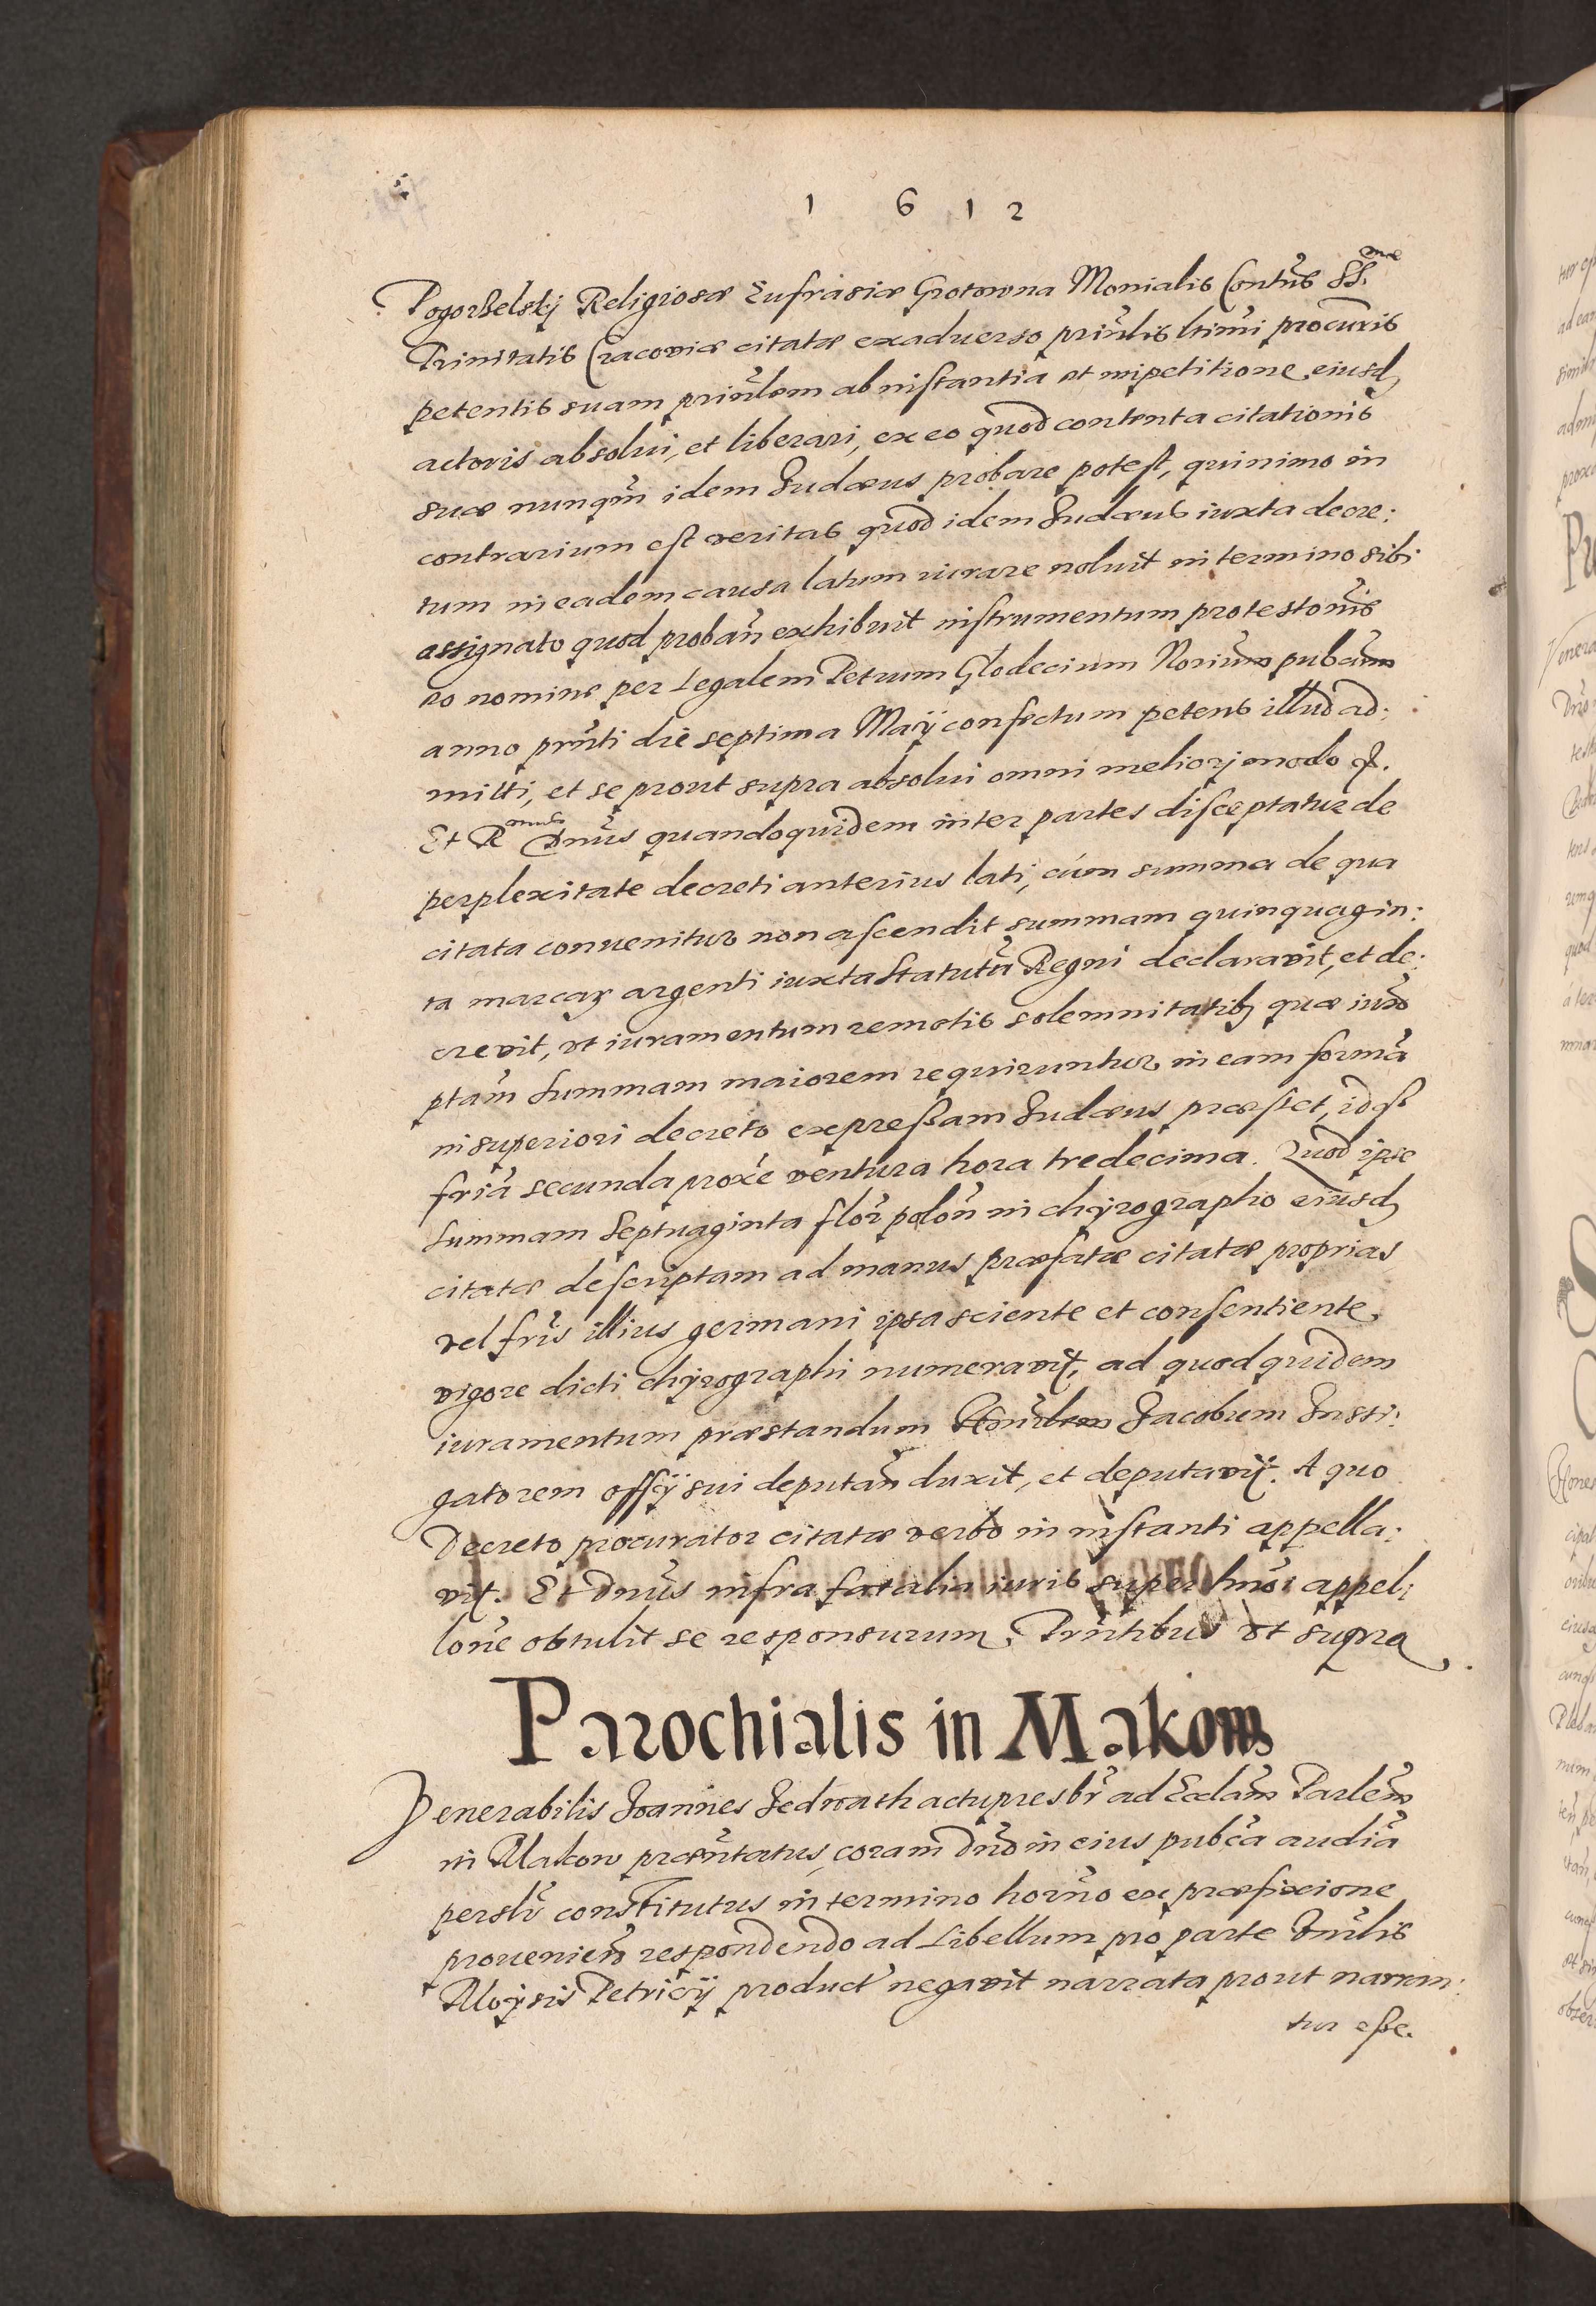 1 6 1 2
Pogorßelskj Religiosæ Eufrasiæ Grotowna Monialis Contus SS.mæ
Trinitatis Cracoviæ citatæ exaduerso prinlis ltimi procuris
petentis suam prinlem ab instantia et impetitione eiusd
actoris absolui, et liberari, ex eo quod contenta citationis
suæ nunqm idem Judæus probare potest, quinimo in
contrarium est veritas quod idem Judæus iuxta decre:
tum in eadem causa latum iurare noluit in termino sibi
assignato quod proban exhibuit instrumentum protestonis
eo nomine per Legalem Petrum Glodecium Norium pubcum
anno prnti die septima Maij confectum petens illud ad:
mitti, et se prout supra absolui omni meliorj modo &.
Et Rmus Dnus quandoquidem inter partes disceptatur de
perplexitate decreti anterius lati, cúm summa de qua
citata conuenitur non ascendit summam quinquagin:
ta marcar argenti iuxta Statuta Regni declaravit, et de:
crevit, vt iuramentum remotis solemnitatib quæ iuxo
ptam summam maiorem requiruntur in eam forma
in superiori decreto expreßam Judæus præstet, id est
feria secunda proxe ventura hora tredecima. Quod ipse
summam septuaginta flor polon in chÿrographo eiusd
citatæ descriptam ad manus præfatæ citatæ proprias
vel fris illius germani ipsa sciente et consentiente
vigore dicti chÿrographi numeravit, ad quod quidem
iuramentum præstandum Honorlem Jacobum Insti:
gatorem offÿ sui deputan duxit, et deputavit. A quo
Decreto procurator citatæ verbo in instanti appella:
vit. Et Dnus infra fatalia iuris super hmoi appel:
lone obtulit se responsurum, Prntibus vt supra
Parochialis in Makow
Venerabilis Joannes Jedwath actu presbr ad Ecclam Parlem
in Makow præsntatus, coram Dno in eius pubca audia
perslr constitutus in termino horno ex præfixione
prouenien respondendo ad Libellum pro parte Dnlis
Aloÿsii Petricÿ product negavit narrata prout narran:
tur eße.